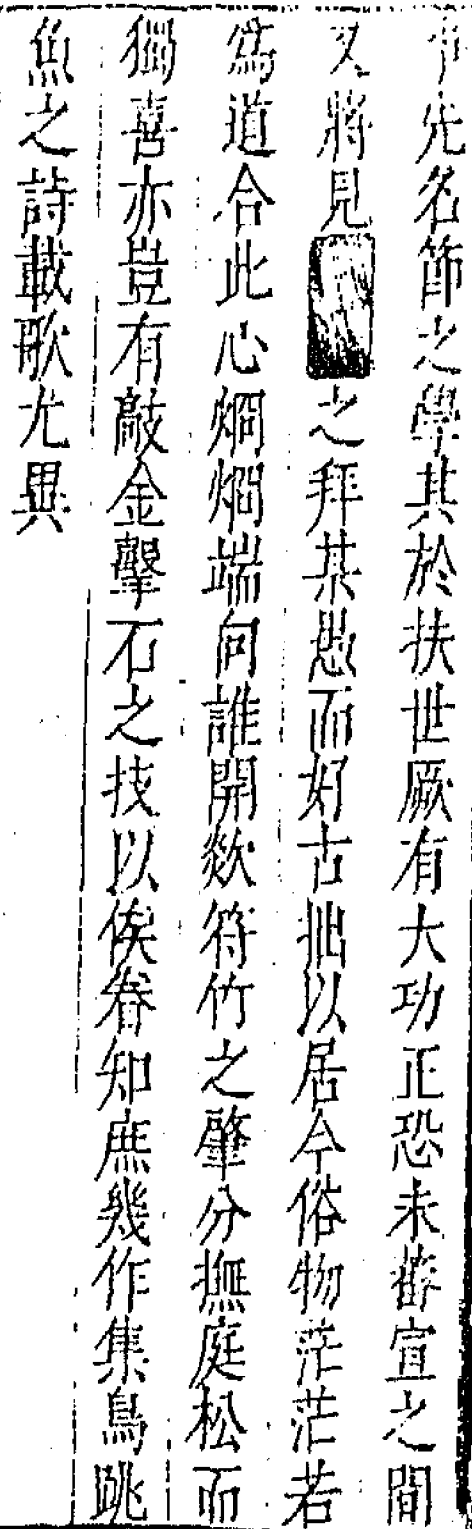 先名節之學其於扶世厥有大功正恐未藩宣之間
又將見之拜某愚而好古拙以居今俗物茫茫若
爲道合此心烱烱端向誰開欻符竹之肇分撫庭松而
獨喜亦豈有敲金擊石之技以俟眷知庶幾作集鳥跳
魚之詩載歌尤異